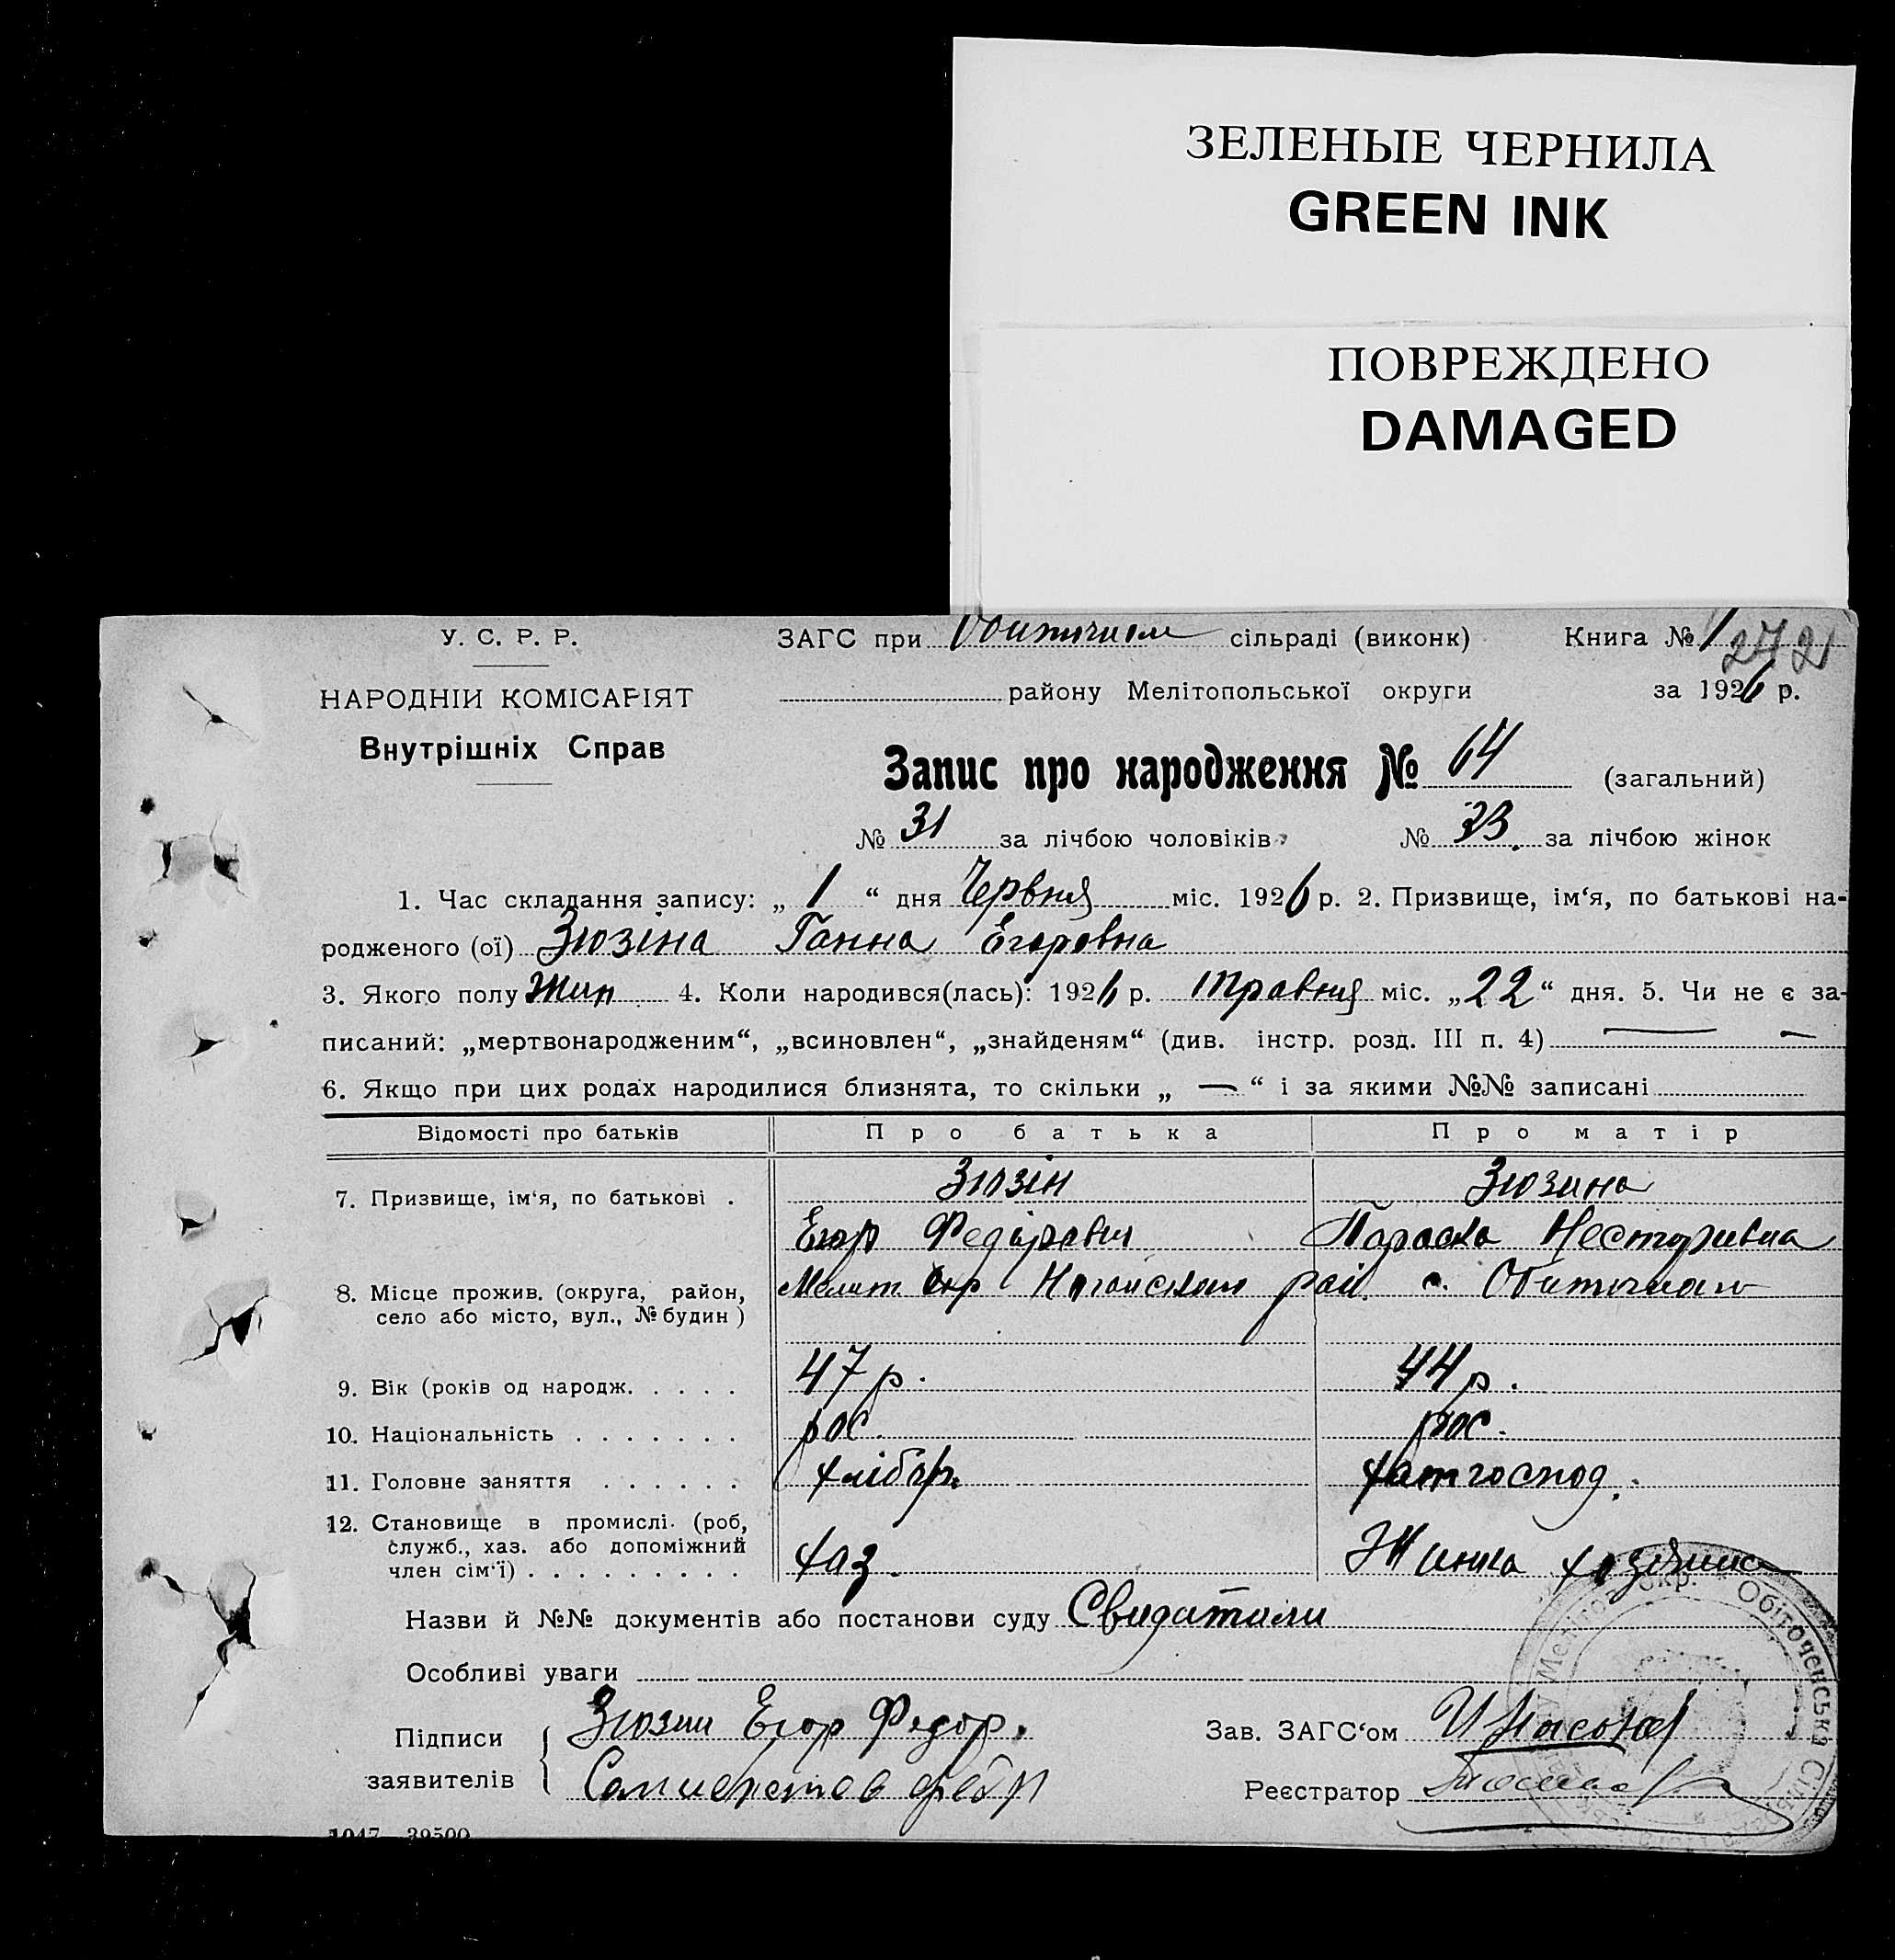 ЗЕЛЕНЫЕ ЧЕРНИЛА
GREEN INK
ПОВРЕЖДЕНО
DAMAGED
У. С. Р. Р.
ЗАГС при сільраді (виконк) Книга № 1
272
НАРОДНІЙ КОМІСАРІЯТ
району Мелітопольської округи за 1926 р.
Внутрішніх Справ
Запис про народження № 64 (загальний)
№ 31 за лічбою чоловіків № 33 за лічбою жінок
1. Час складання запису: „ 1 “ дня Червня міс. 1926 р. 2. Призвище, ім‘я, по батькові на-
родженого (ої) Зюзіна Ганна Егоровна
3. Якого полу Жин 4. Коли народився(лась): 1926 р. Травня міс. „22“ дня. 5. Чи не є за-
писаний: „мертвонародженим“, „всиновлен“, „знайденям“ (див. інстр. розд. III п. 4) — —
6. Якщо при цих родах народилися близнята, то скільки „ — “ і за якими №№ записані
Відомості про батьків Про батька Про матір
7. Призвище, ім‘я, по батькові . Зюзін Зюзина
Егор Федорович Параска Несторивна
8. Місце прожив. (округа, район, Мелит. окр рай. с.
село або місто, вул., № будин )
9. Вік (років од народж. . . . . 47 р. 44 р.
10. Національність . . . . . . . рос. рос.
11. Головне заняття . . . . . . хлібор. хатгоспод.
12. Становище в промислі. (роб,
служб., хаз. або допоміжний
член сім‘ї) . . . . . . . . . хаз. Жинка
Назви й №№ документів або постанови суду Свидатели
Особливі уваги
Підписи Зюзин Егор Федор. Зав. ЗАГС‘ом
заявителів Реєстратор
Обіточенська
1047 39500